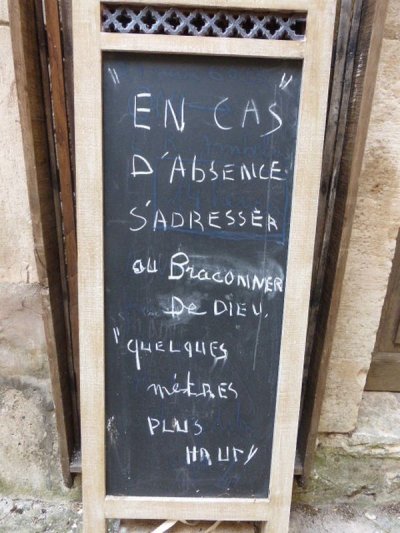 " EN CAS "
D'ABSENCE
S'ADRESSER
au BRACONNIER
De DIEU.
"QUELQUES
mètRES
PLUS
HAUT"